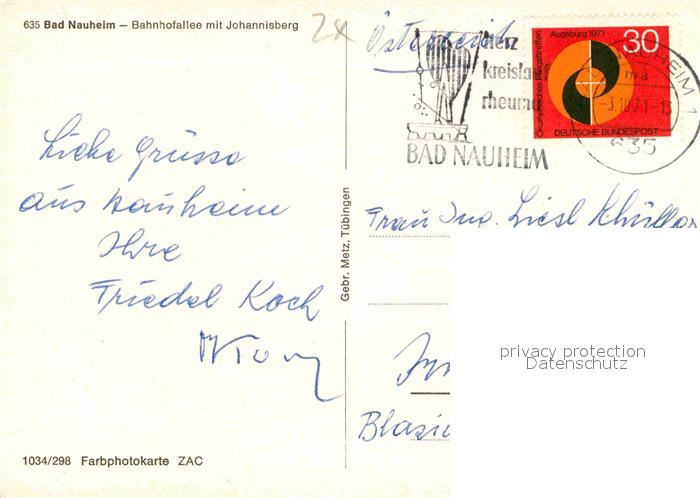 635 Bad Nauheim — Bahnhofallee mit Johannisberg
2x
Österreich
Herz
kreislau
rheuma
BAD NAUHEIM
Augsburg 1971
30
Ökumenisches Pfingsttreffen
DEUTSCHE BUNDESPOST
NAUHEIM 1
ma
-3.10.71-13
635
Liebe Grüsse
aus Nauheim
Ihre
Friedel Koch
Gebr. Metz, Tübingen
Frau Ing. Liesl Khüller
privacy protection
Datenschutz
Blasiu
1034/298 Farbphotokarte ZAC